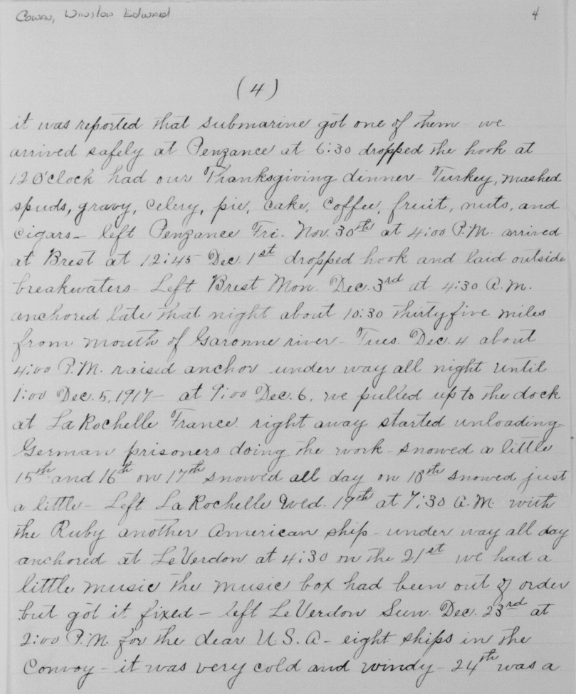 Cowan, Winston Edward 4
(4)
it was reported that submarine got one of them - we
arrived safely at Penzance at 6:30 dropped the hook at
12 O'clock had our Thanksgiving dinner - Turkey, mashed
spuds, gravy, celery, pie, cake, coffee, fruit, nuts, and
cigars - left Penzance Fri. Nov. 30th at 4:00 P.M. arrived
at Brest at 12:45 Dec. 1st dropped hook and laid outside
breakwaters - Left Brest Mon. Dec. 3rd at 4:30 A.M.
anchored late that night about 10:30 thirtyfive miles
from mouth of Garonne river - Tues. Dec. 4 about
4:00 P.M. raised anchor - under way all night until
1:00 Dec. 5, 1917 - at 9:00 Dec. 6. we pulled up to the dock
at LaRochelle France right away started unloading
German prisoners doing the work - snowed a little
15th and 16th on 17th snowed all day on 18th snowed just
a little - Left LaRochelle Wed. 19th at 7:30 A.M. with
the Ruby another American ship - under way all day
anchored at LeVerdon at 4:30 on the 21st we had a
little music the music box had been out of order
but got it fixed - left LeVerdon Sun. Dec. 23rd at
2:00 P.M for the dear U.S.A - eight ships in the
Convoy - it was very cold and windy - 24th was a